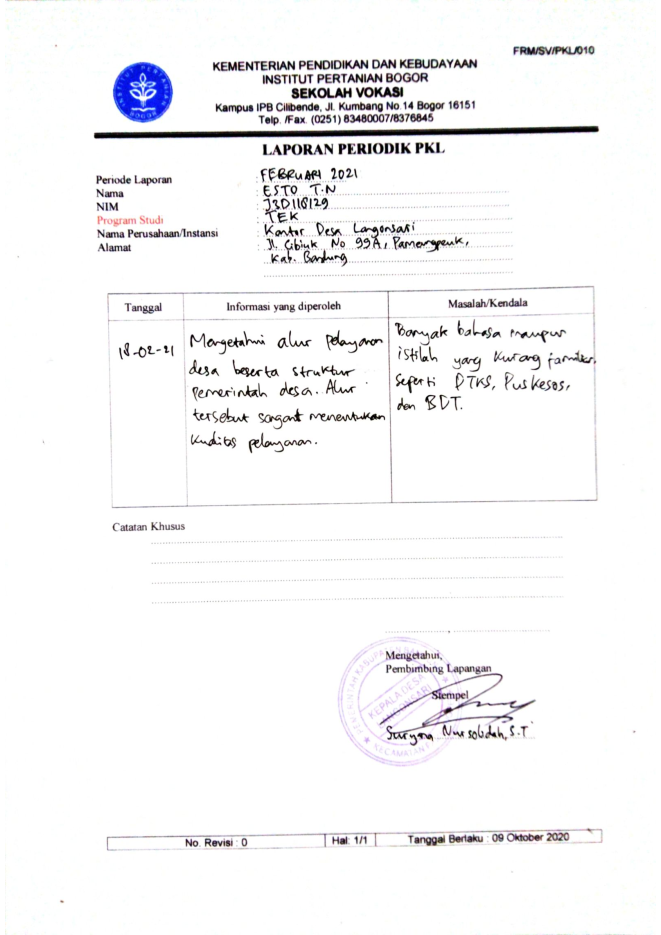 FRM/SV/PKL/010
KEMENTERIAN PENDIDIKAN DAN KEBUDAYAAN
INSTITUT PERTANIAN BOGOR
SEKOLAH VOKASI
Kampus IPB Cilibende, Jl. Kumbang No.14 Bogor 16151
Telp. /Fax. (0251) 83480007/8376845
INSTITUT PERTANIAN BOGOR
LAPORAN PERIODIK PKL
Periode Laporan : FEBRUARI 2021
Nama : ESTO T.N
NIM : J3D118129
Program Studi : TEK
Nama Perusahaan/Instansi : Kantor Desa Langonsari
Alamat : Jl. Cibiuk No 99A, Pameungpeuk,
Kab. Bandung
Tanggal Informasi yang diperoleh Masalah/Kendala
18-02-21
Mengetahui alur pelayanan
desa beserta struktur
pemerintah desa. Alur
tersebut sangat menentukan
kualitas pelayanan.
Banyak bahasa maupun
istilah yang kurang familiar,
seperti DTKS, Puskesos,
dan BDT.
Catatan Khusus
Mengetahui,
Pembimbing Lapangan
Stempel
KEPALA DESA
KECAMATAN
Suryana S.T
No. Revisi : 0 Hal: 1/1 Tanggal Berlaku : 09 Oktober 2020